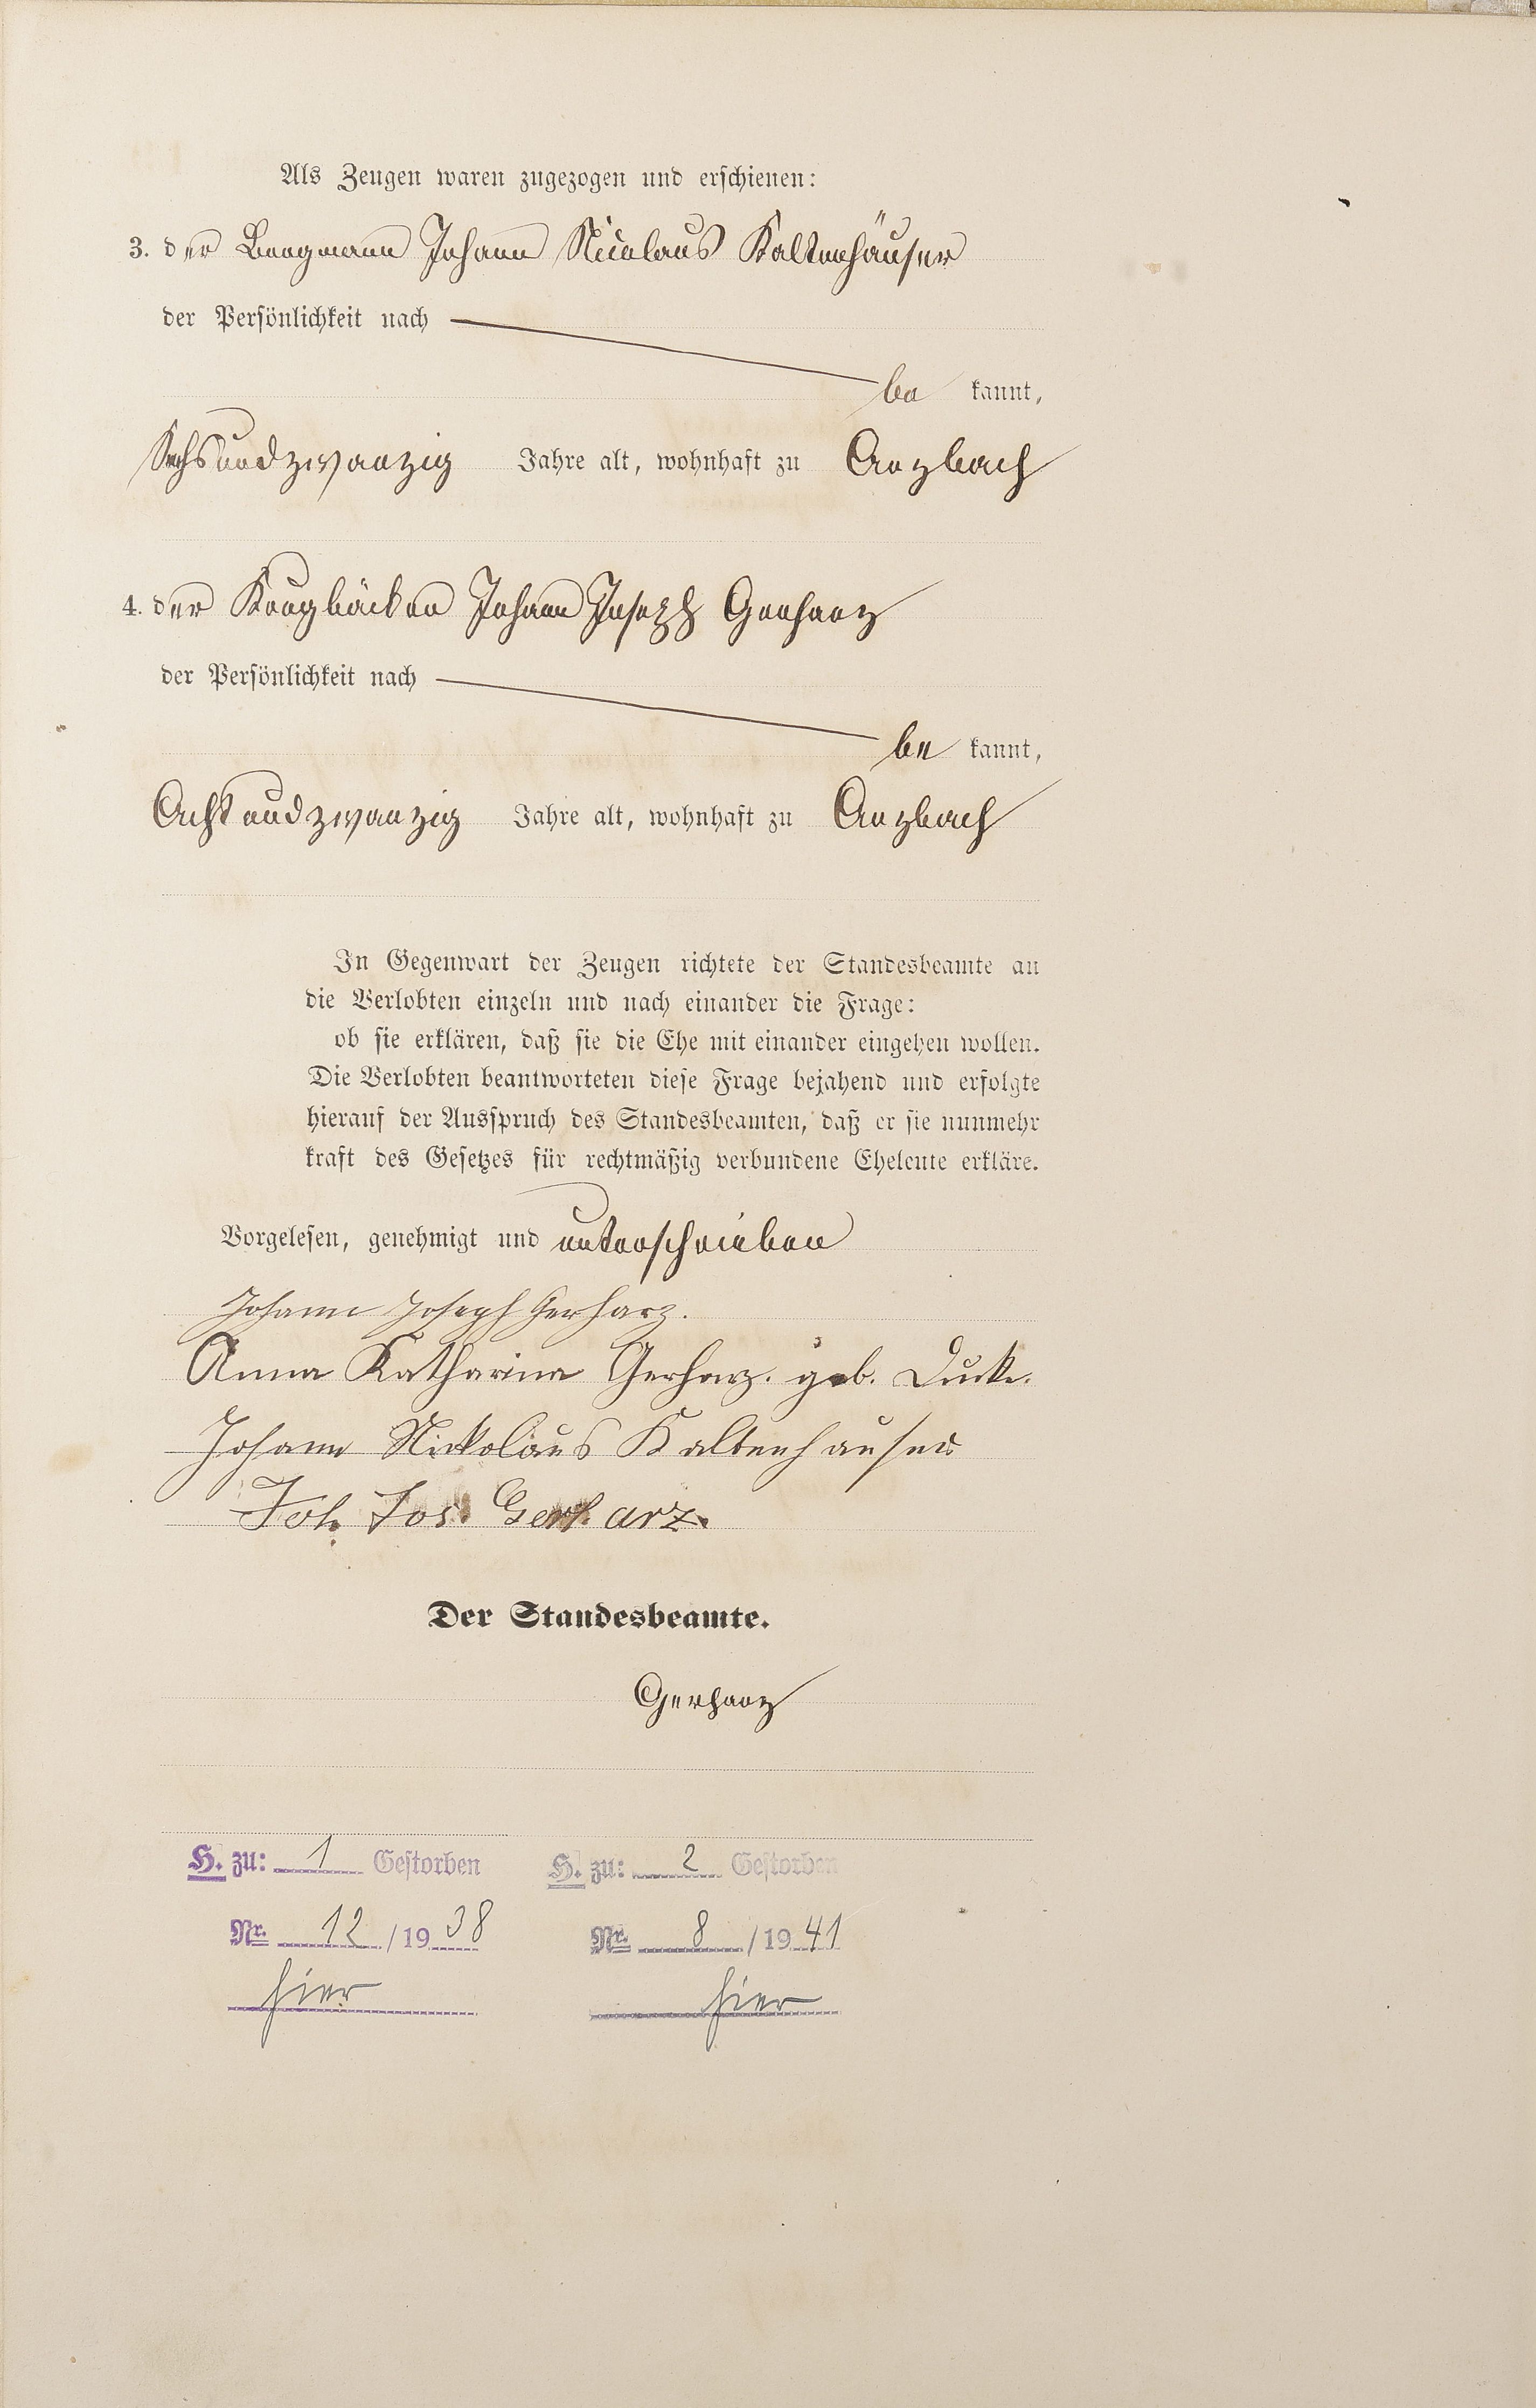 Als Zeugen waren zugezogen und erschienen:
3. der Bergmann Johann Nicolaus Kaltenhäuser
der Persönlichkeit nach
be kannt,
Sechsundzwanzig Jahre alt, wohnhaft zu Arzbach
4. der Krugbäcker Johann Joseph Gerharz
der Persönlichkeit nach
be kannt,
Achtundzwanzig Jahre alt, wohnhaft zu Arzbach
In Gegenwart der Zeugen richtete der Standesbeamte an
die Verlobten einzeln und nach einander die Frage:
ob sie erklären, daß sie die Ehe mit einander eingehen wollen.
Die Verlobten beantworteten diese Frage bejahend und erfolgte
hierauf der Ausspruch des Standesbeamten, daß er sie nunmehr
kraft des Gesetzes für rechtmäßig verbundene Eheleute erkläre.
Vorgelesen, genehmigt und unterschrieben
Johann Joseph Gerharz.
Anna Katharina Gerharz. geb. Ducke.
Johann Nickolaus Kaltenhäuser
Joh. Jos. Gerharz.
Der Standesbeamte.
Gerharz
H. zu: 1 Gestorben H. zu: 2 Gestorben
Nr. 12 / 19 38 Nr. 8 / 19 41
hier hier